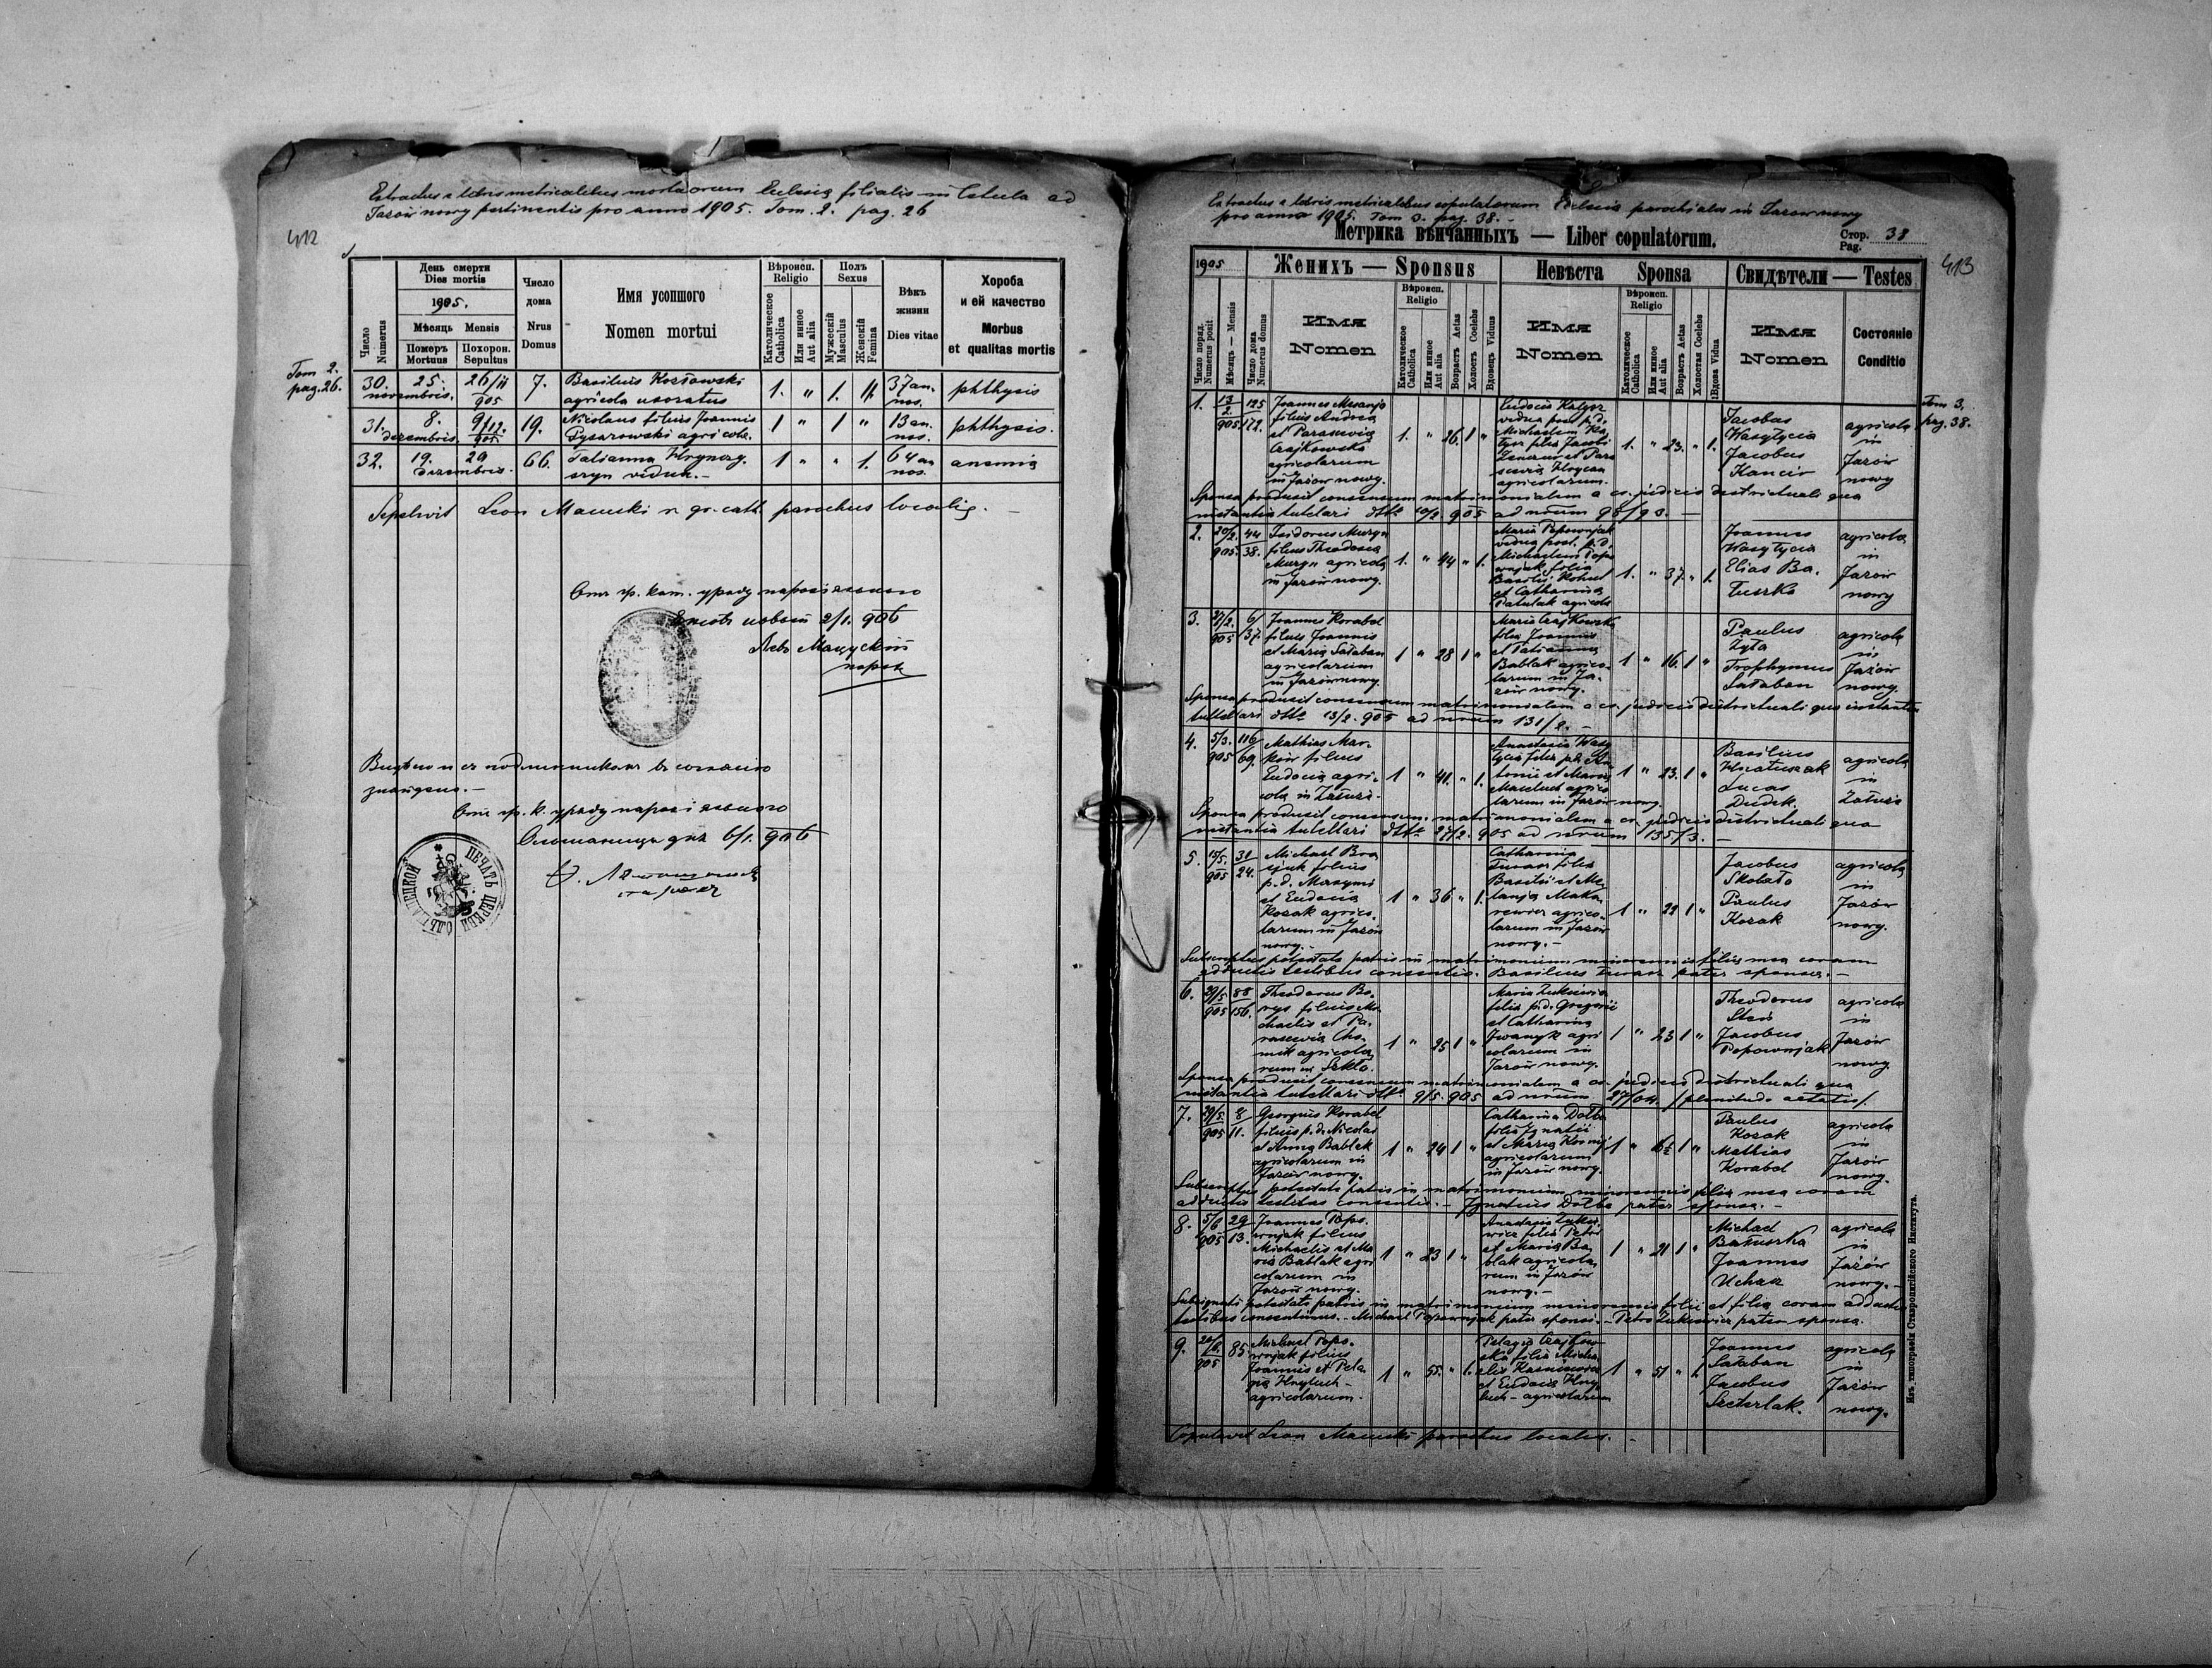 Extractus e libris metricalibus mortuorum Ecclesiæ filialis in Cetula ad
Jazów nowy pertinentis pro anno 1905. Tom. 2. pag. 26
412
День смерти
Dies mortis
1905.
Мѣсяць Mensis
Число
Numerus
Померъ
Mortuus
Похорон.
Sepultus
Число
дома
Nrus
Domus
Имя усопшого
Nomen mortui
Вѣроисп.
Religio
Католическое
Catholica
Или инное
Aut alia
Полъ
Sexus
Мужескій
Masculus
Женскій
Femina
Вѣкъ
жизни
Dies vitae
Хороба
и ей качество
Morbus
et qualitas mortis
Tom 2.
pag. 26.
30. 25. novembris. 26/11 905 7. Basilius Kozłowski
agricola uxoratus 1. " 1. " 37 an
nos. phthysis
31. 8. dezembris 9/12. 905 19. Nicolaus filius Joannis
Pysarowski agricolæ. 1 " 1 " 13 an
nos. phthysis.
32. 19. 29 dezembris. 66. Tatianna
vidua.- 1 " " 1. 64 an
nos. anemia
Sepelivit Leon Macuski r. gr. cath. parochus localis. -
Отъ гр. кат. уряду парохіяльного
новый 2/1. 906
Левъ Мацускій
парох
Отъ гр. к. уряду парохіяльного
дня 6/1. 906
ПЕЧАТЬ ЦЕРКВИ
Extractus e libris metricalibus copulatorum Ecclesiæ parochialis in Jazów nowy
pro anno 1905. Tom 3. pag. 38. -
Метрика вѣнчанныхъ — Liber copulatorum.
Стор.
Pag. 38
413
1905
Женихъ — Sponsus
Невѣста Sponsa
Свидѣтели — Testes
Число поряд.
Numerus posit
Мѣсяць — Mensis
Число дома
Numerus domus
Имя
Nomen
Вѣроисп.
Religio
Католическое
Catholica
Или инное
Aut alia
Возрастъ Aetas
Холостъ Coelebs
Вдовецъ Viduus
Имя
Nomen
Вѣроисп.
Religio
Католическое
Catholica
Или инное
Aut alia
Возрастъ Aetas
Холостая Coelebs
Вдова Vidua
Имя
Nomen
Состояніе
Conditio
Tom 3.
pag. 38.
1. 13/2. 905 125 172.
Joannes
filius Andreæ
et Parasceviæ
Czajkowska
agricolarum
in Jazów nowy.
1. " 26. 1 "
Eudocia
vidua post p.d.
Michaelem
filia Jacobi
agricolarum.
1. " 23. " 1.
Jacobus
Wasyłycia
Jacobus
Kancir
agricolæ
in
Jazów
nowy
Sponsa produxit consensum matrimonialem a c.r. judicio districtuali qua
instantia tutelari dtto 10/2 905 ad nrum 90/93. -
2. 20/2. 905. 44 38.
Isidorus Murga
filius Theodosia
Murga agricola
in Jazów nowy.
1. " 44 " 1.
Maria Popowniak
vidua post. p.d.
Michaelem Popo
wnjak filia
Basilii
et Catharina
1. " 37. " 1.
Joannes
Wasyłycia
Elias Ba.
łuszka
agricolæ
in
Jazów
nowy
3. 27/2. 905 6/ /37.
Joannes Korabel
filius Joannis
et Maria Sałaban
agricolarum
in Jazów nowy.
1 " 28 1 "
Maria Czajkowska
filia Joannis
et Tatianna
Bablak agrico-
larum in Ja-
zów nowy.
1 " 16. 1 "
Paulus
Żyła
Trophymus
Sałaban
agricolæ
in
Jazów
nowy.
Sponsa produxit consensum matrimonialem a c.r. judicio districtuali qua instantia
tutelari dtto 13/2. 905 ad nrum 131/2. -
4. 5/3. 905 116 69.
Mathias Mar-
ków filius
Eudocia agri-
cola in Załuże.
1 " 41. " 1.
Anastasia Wasy
łycia filia p.d. An
tonii et Maria
agrico
larum in Jazów nowy.
1 " 23. 1 "
Basilius
Lucas
Dudek.
agricolæ
in
Załuże
Sponsa produxit consensum matrimonialem a c.r. judicio districtuali qua
instantia tutelari dtto 27/2. 905 ad nrum 135/3. -
5. 15/5. 905 31 24.
Michael
filius
p.d. Maxymi
et Eudocia
Kozak agrico-
larum in Jazów
nowy.-
1 " 36 " 1.
Catharina
Turas filia
Basilii et Me-
lania Maka-
rewicz agrico-
larum in Jazów
nowy.-
1 " 22 1 "
Jacobus
Skobało
Paulus
Kozak
agricolæ
in
Jazów
nowy.
Subscriptus potestate patris in matrimonium minorennis filiæ meæ coram
adductis testibus consentio. Basilius Turas pater sponsæ. -
6. 29/5 905 88 156.
Theodorus Bo-
rys filius Mi-
chaelis et Pa-
rascevia Cho-
mik agricola
rum in Szkło.
1 " 25 1 "
Maria Łukiewicz
filia p.d. Gregorii
et Catharina
Iwanyk agri
colarum in
Jazów nowy.
1 " 23 1 "
Theodorus
Steń
Jacobus
Popowniak
agricolæ
in
Jazów
nowy.
Sponsa produxit consensum matrimonialem a c.r. judicio districtuali qua
instantia tutelari dtto 9/5. 905 ad nrum 27/04. /plenitudo aetatis/.
7. 29/5. 905 8 11.
Georgius Korabel
filius p.d. Nicolai
et Anna Bablak
agricolarum in
Jazów nowy.
1 " 24 1 "
Catharina Dołba
filia Ignatii
et Maria
agricolarum
in Jazów nowy.
1 " 1 "
Paulus
Kozak
Mathias
Korabel
agricolæ
in
Jazów
nowy.
Subscriptus potestate patris in matrimonium minorennis filiæ meæ coram
adductis testibus consentio. - Ignatius Dołba pater sponsæ. -
8. 5/6 905 29 13.
Joannes Popo-
wnjak filius
Michaelis et Ma
ria Bablak agri
colarum in
Jazów nowy.
1 " 23 1 "
Anastasia Łukie-
wicz filia Petri
et Maria Ba
blak agricola
rum in Jazów
nowy.-
1 " 21 1 "
Michael
Bałuszka
Joannes
Uchacz
agricolæ
in
Jazów
nowy.-
Subsignati potestate patris in matrimonium minorennis filii et filiæ coram adductis
testibus consentimus. - Michael Popowniak pater sponsi. - Petro Łukiewicz pater sponsæ.
9. 905 85.
Michael Popo-
wnjak filius
Joannis et Pela
gia
agricolarum.
1 " 55. " 1.
Pelagia Czajkow-
ska filia Micha
elis
et Eudocia
agricolarum
1 " 51 " 1.
Joannes
Sałaban
Jacobus
Szczerłak.
agricolæ
in
Jazów
nowy.
Copulavit Leon Macuski parochus localis. -
Изъ типографіи Ставропигійского Института.